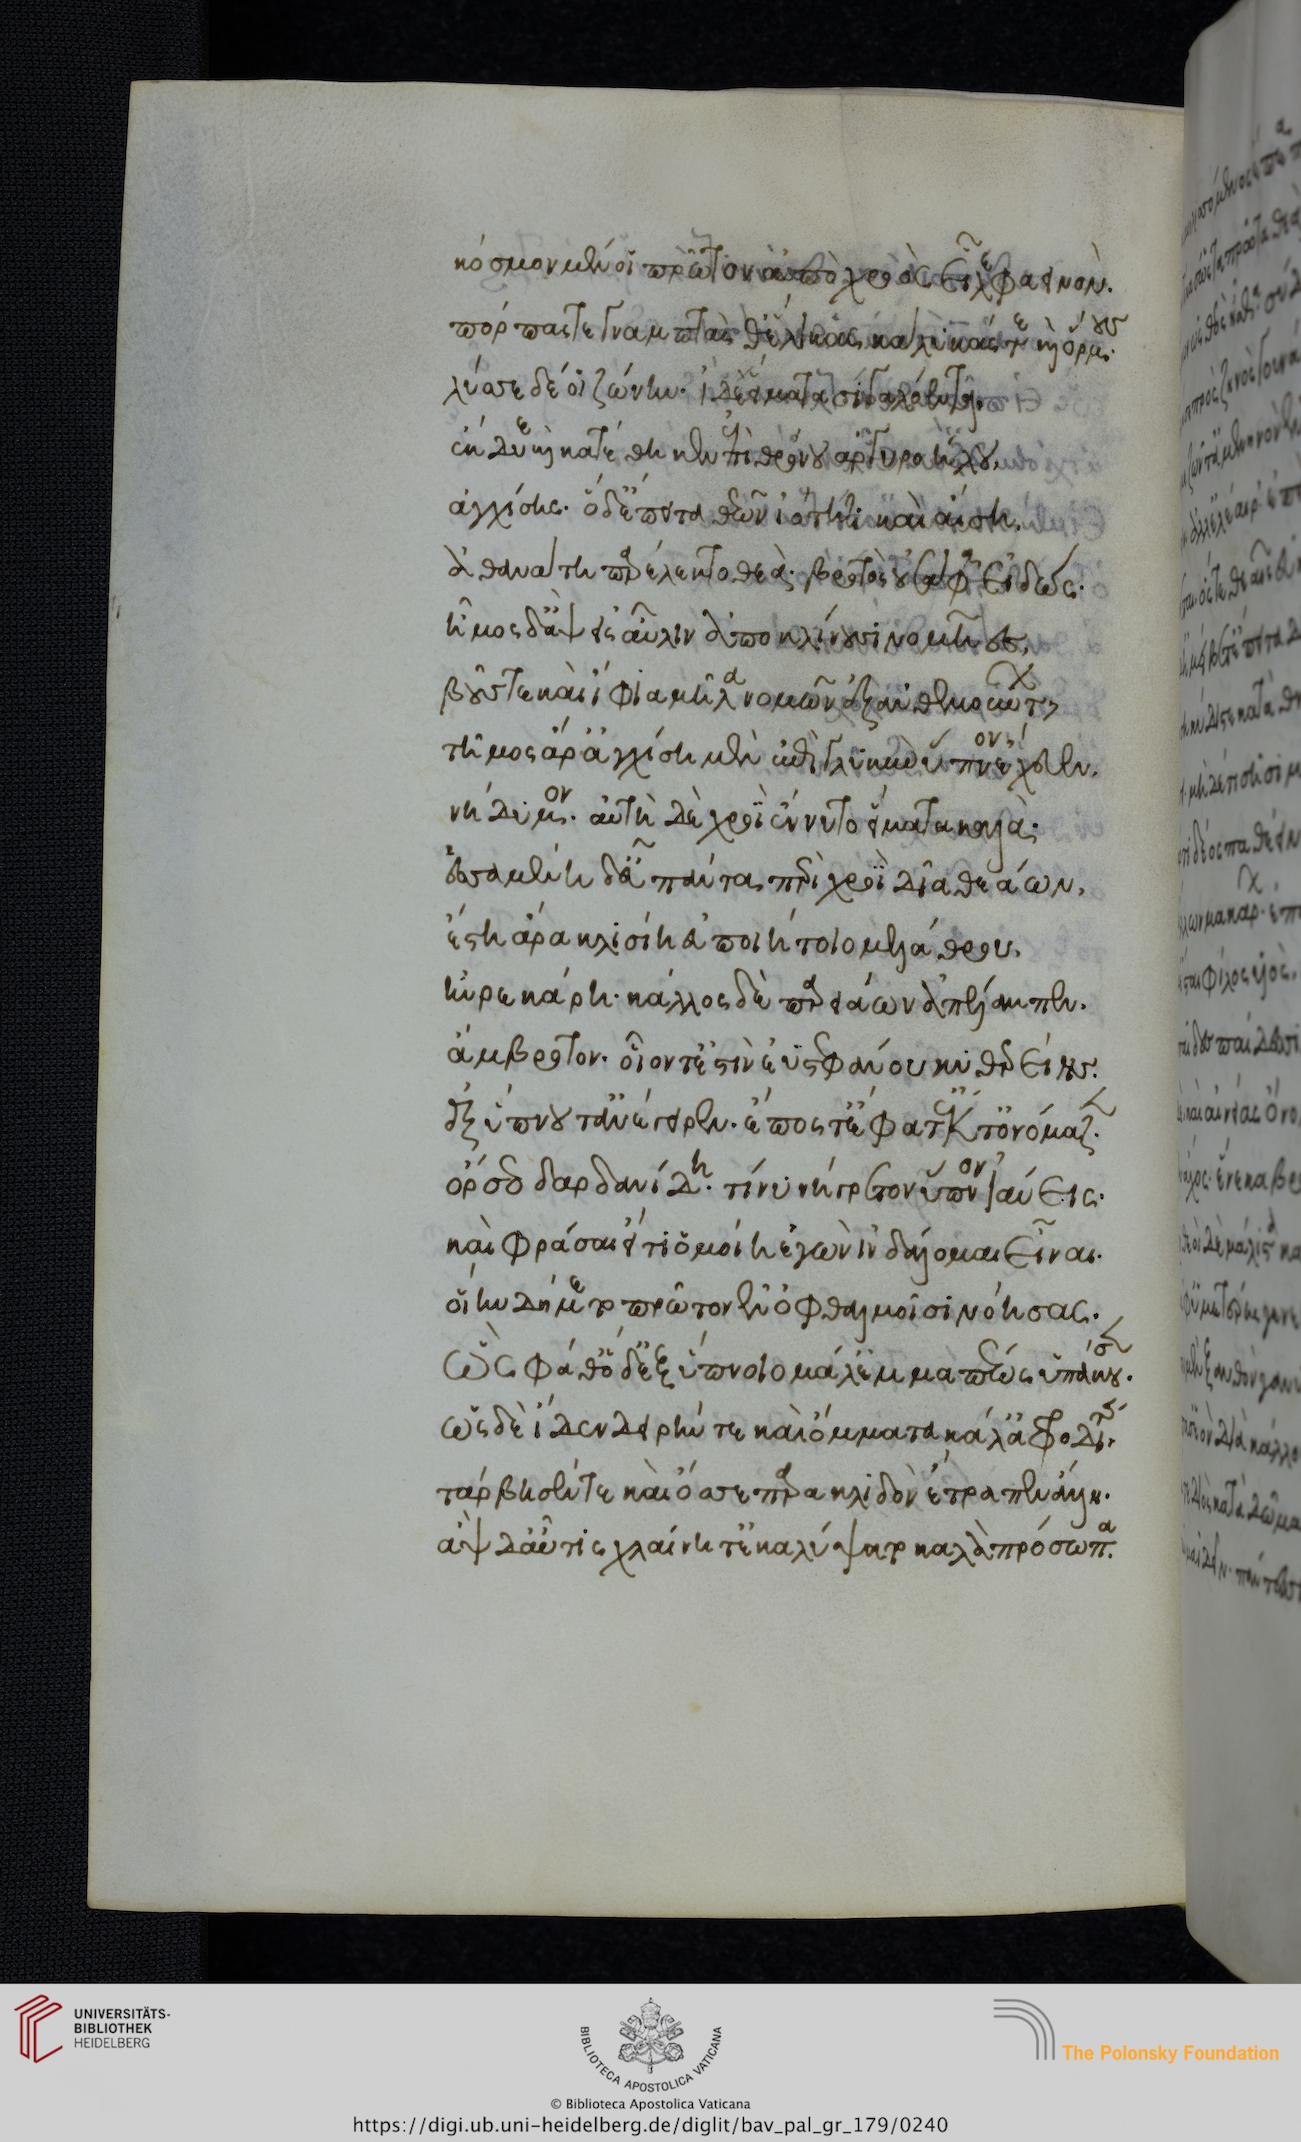 κόσμον μέν οἱ πρῶτον ἀπὸ χροὸς εἷλε φαεινόν.
πόρπας τε γναμπτάς θ' ἕλικας κάλυκάς τε καὶ ὅρμους.
λῦσε δέ οἱ ζώνην. ἰδὲ εἵματα σιγαλόεντα.
ἔκδυε καὶ κατέθηκεν ἐπὶ θρόνου ἀργυροήλου.
ἀγχίσης. ὁ δ' ἔπειτα θεῶν ἰότητι καὶ αἴση.
ἀθανάτη παρέλεκτο θεὰ. βροτὸς οὐ σάφα εἰδώς.
ἦμος δ' ἂψ εἰς αὖλιν ἀποκλίνουσι νομῆες.
βοῦς τε καὶ ἴφια μῆλα νομῶν ἐξ ἀνθεμοέντων
τῆμος ἄρ' ἀγχίση μὲν ἐπὶ γλυκὺν ὕπνον ἔχευεν.
νήδυμον. αὐτὴ δὲ χροῒ ἕννυτο εἵματα καλὰ.
ἑσσαμένη δ' εὖ πάντα περὶ χροῒ δῖα θεάων.
ἔστη ἄρα κλισίη εὐποιήτοιο μελάθρου.
κῦρε κάρη. κάλλος δὲ παρειάων ἀπέλαμπεν.
ἄμβροτον. οἷόν τ' ἐστὶν ἐϋστεφάνου κυθερείης.
ἐξ ὕπνου τ' ἀνέγειρεν. ἔπος τ' ἔφατ' ἔκ τ' ὀνόμαζε.
ὄρσεο δαρδανίδη. τί νυ νήγρετον ὕπνον ἰαύεις.
καὶ φράσαι εἴ τι ὁμοίη ἐγὼν ἰνδάλλομαι εἶναι.
οἵην δή με τὸ πρῶτον ἐν ὀφθαλμοῖσι νόησας.
ὣς φάθ' ὁ δ' ἐξ ὕπνοιο μάλ' ἐμμαπέως ὑπάκουσεν.
ὡς δὲ ἴδεν δειρήν τε καὶ ὄμματα κάλ' ἀφροδίτης.
τάρβησέν τε καὶ ὄσσε παρακλιδὸν ἔτραπεν ἄλλη.
ἂψ δ' αὖτις χλαίνη τε καλύψατο καλὰ πρόσωπα.
UNIVERSITÄTS-
BIBLIOTHEK
HEIDELBERG
BIBLIOTECA APOSTOLICA VATICANA
The Polonsky Foundation
© Biblioteca Apostolica Vaticana
https://digi.ub.uni-heidelberg.de/diglit/bav_pal_gr_179/0240